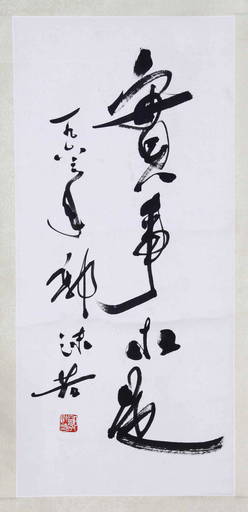 實事求是
一九六三年 郭沫若